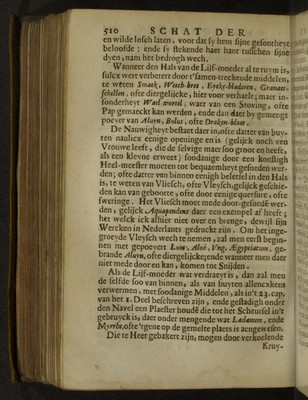 510 SCHAT DER
en wilde losch laten, voor dat sy hem sijne gesontheyt
beloofde : ende sy stekende haer haut tusschen sijne
dyen, nam het bedrogh wech.
Wanneer den Hals van de Lijf-moeder al te ruym is,
sulcx wert verbetert door t'samen-treckende middelen,
te weten Smack, Weech-bree, Eyck-bladeren, Granaet-
schellen, ofte diergelijcke, hier voor verhaelt; maer in-
sonderheyt Wael-wortel, waer van een Stoving, ofte
Pap gemaeckt kan werden, ende dan daer by gemengt
poeyer van Aluyn, Bolus, ofte Draken-bloet.
De Nauwigheyt bestaet daer in, ofte datter van buy-
ten naulicx eenige openinge en is (gelijck noch een
Vrouwe leeft, die de selvige maer soo groot en heeft,
als een kleyne erweet) soodanige door een konstigh
Heel-meester moeten ten bequaemheyt gesneden wer-
den; ofte datter van binnen eenigh beletsel in den Hals
is, te weten van Vliesch, ofte Vleysch, gelijck geschie-
den kan van geboorte, ofte door eenige quetsure, ofte
sweringe. Het Vliesch moet mede door-gesneden wer-
den, gelijck Aquapendens daer een exempel af heeft;
het welck ick alhier niet over en brenge, dewijl sijn
Wercken in Nederlants gedruckt zijn. Om het inge-
groeyde Vleysch wech te nemen, zal men eerst begin-
nen met gepoeyert Loot, Aloë, Vng. Ægyptiacum, ge-
brande Aluyn, ofte diergelijcke; ende wanneer men daer
niet mede door en kan, komen tot Snijden.
Als de Lijf-moeder wat verdraeyt is, dan zal men
de selfde soo van binnen, als van buyten allencxkens
verwermen, met soodanige Middelen, als in't 23. cap.
van het 1. Deel beschreven zijn, ende gestadigh onder
den Navel een Plaester houdē die tot het Scheursel in't
gebruyck is, daer onder mengende wat Ladanum, ende
Myrrhe, ofte 'tgene op de gemelte plaets is aengewesen.
Die te Heet gebakert zijn, mogen door verkoelende
Kruy-